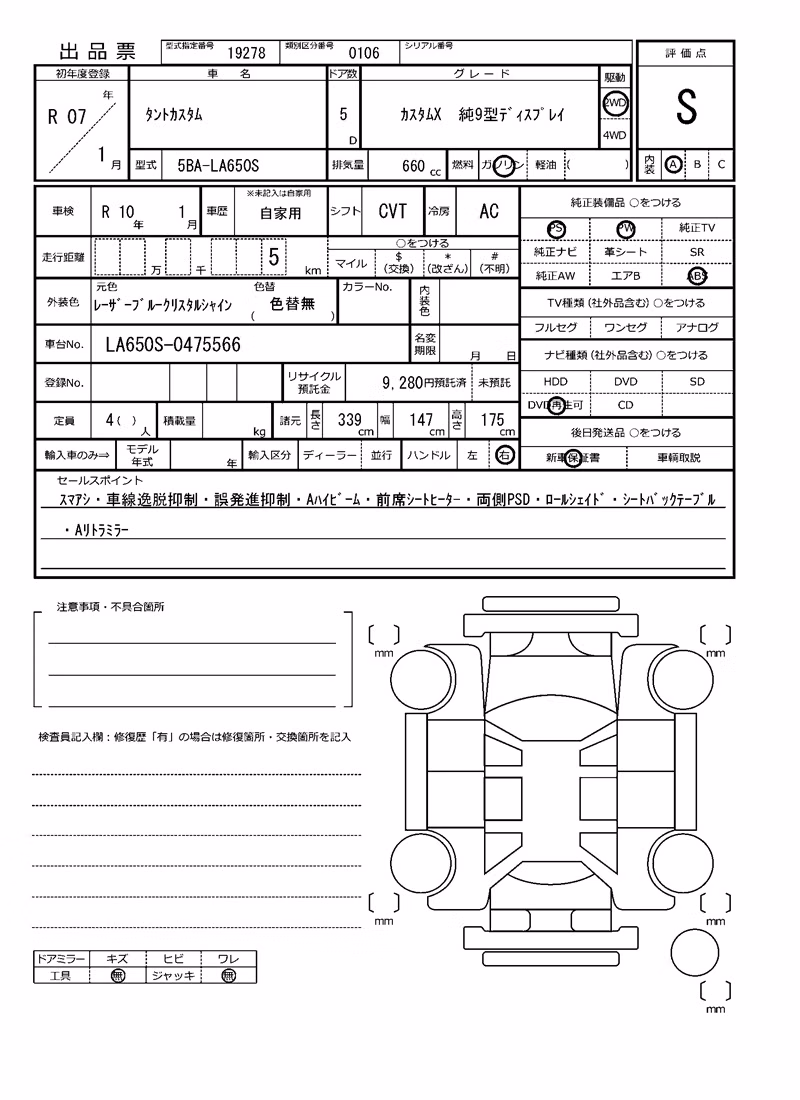 出品票 型式指定番号 19278 類別区分番号 0106 シリアル番号
評価点
初年度登録 車名 ドア数 グレード 駆動
R 07 年 1 月 タントカスタム 5 D カスタムX 純9型ディスプレイ 2WD 4WD
S
型式 5BA-LA650S 排気量 660 cc 燃料 ガソリン 軽油 ( )
内装 A B C
車検 R 10 年 1 月 車歴 ※未記入は自家用 自家用 シフト CVT 冷房 AC
走行距離 万 千 5 km ○をつける マイル $ (交換) * (改ざん) # (不明)
外装色 元色 レーザーブルークリスタルシャイン 色替 ( 色替無 ) カラーNo. 内装色
車台No. LA650S-0475566 名変期限 月 日
登録No. リサイクル預託金 9,280円預託済 未預託
定員 4 ( ) 人 積載量 kg 諸元 長さ 339 cm 幅 147 cm 高さ 175 cm
輸入車のみ⇒ モデル年式 年 輸入区分 ディーラー 並行 ハンドル 左 右
純正装備品 ○をつける
PS PW 純正TV
純正ナビ 革シート SR
純正AW エアB ABS
TV種類(社外品含む)○をつける
フルセグ ワンセグ アナログ
ナビ種類(社外品含む)○をつける
HDD DVD SD
DVD再生可 CD
後日発送品 ○をつける
新車保証書 車輌取説
セールスポイント
スマアシ・車線逸脱抑制・誤発進抑制・Aハイビーム・前席シートヒーター・両側PSD・ロールシェイド・シートバックテーブル
・Aリトラミラー
注意事項・不具合箇所
検査員記入欄:修復歴「有」の場合は修復箇所・交換箇所を記入
ドアミラー キズ ヒビ ワレ
工具 無 ジャッキ 無
mm mm
mm mm
mm